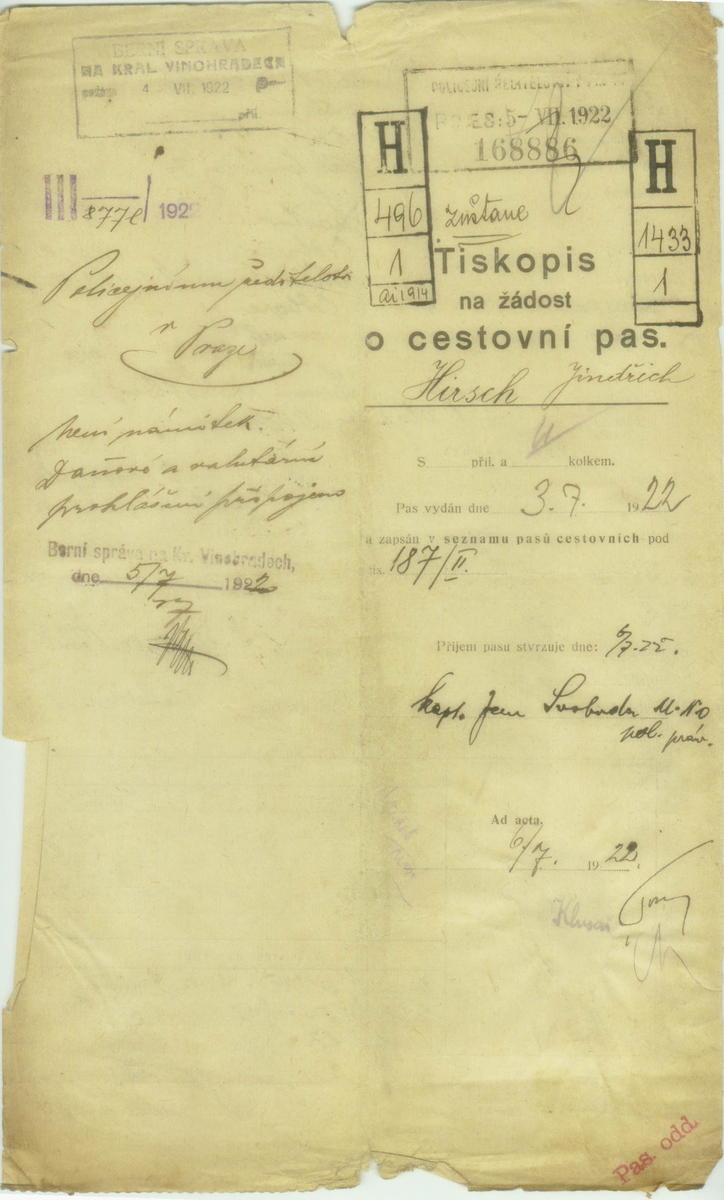 BERNÍ SPRÁVA
NA KRÁL VINOHRADECH
4 VII. 1922
příl.
III 1922
Policejnímu ředitelství
v Praze
není námitek.
Daňové a valutární
prohlášení připojeno
Berní správa na Kr. Vinohradech,
dne 5/7 1922
POLICEJNÍ ŘEDITELSTVÍ V PRAZE
5- VII. 1922
168886
H
496
1
ai 1914
H
1433
1
zůstane
Tiskopis
na žádost
o cestovní pas.
Hirsch Jindřich
S příl. a kolkem.
Pas vydán dne 3.7. 1922
a zapsán v seznamu pasů cestovních pod
čís. 187/II.
Příjem pasu stvrzuje dne: 6/7.22.
kapt. Jan Svoboda M.N.O
pol. práv.
Ad acta.
6/7. 1922.
Pas. odd.